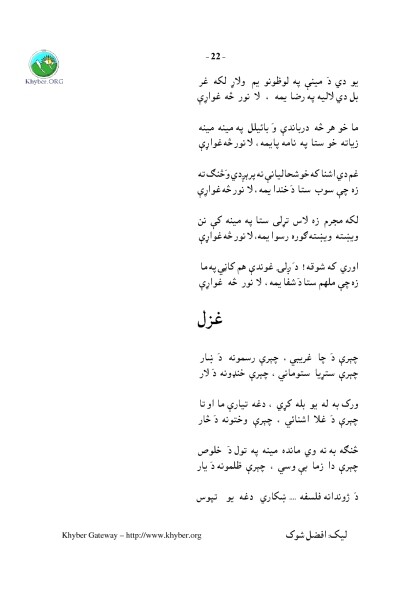 Khyber.ORG
- 22 -
يو دي دَ ميني په لوظونو يم ولاړ لکه غر
بل دي لاليه په رضا يمه ، لا نور څه غواړې
ما خو هر څه درباندې وَ بائيلل په مينه مينه
زياته خو ستا په نامه پايمه، لا نور څه غواړې
غم دي اشنا که خوشحالياني نه پرېږدي وَ څنګ ته
زه چې سوب ستا دَ خندا يمه، لا نور څه غواړې
لکه مجرم زه لاس تړلی ستا په مينه کې نن
ويښته ويښته ګوره رسوا يمه، لا نور څه غواړې
اوري که شوقه! دَ ړلۍ غوندې هم کاڼي په ما
زه چې ملهم ستا دَ شفا يمه، لا نور څه غواړې
غزل
چېرې دَ چا غريبي ، چېرې رسمونه دَ ښار
چېرې ستړيا ستوماني ، چېرې خنډونه دَ لار
ورک به له يو بله کړي ، دغه تيارې ما او تا
چېرې دَ غلا اشنائي ، چېرې وختونه دَ څار
څنګه به نه وي مانده مينه په تول دَ خلوص
چېرې دا زما بې وسي ، چېرې ظلمونه دَ يار
دَ ژوندانه فلسفه ... ښکاري دغه يو تپوس
ليک: افضل شوک
Khyber Gateway – http://www.khyber.org